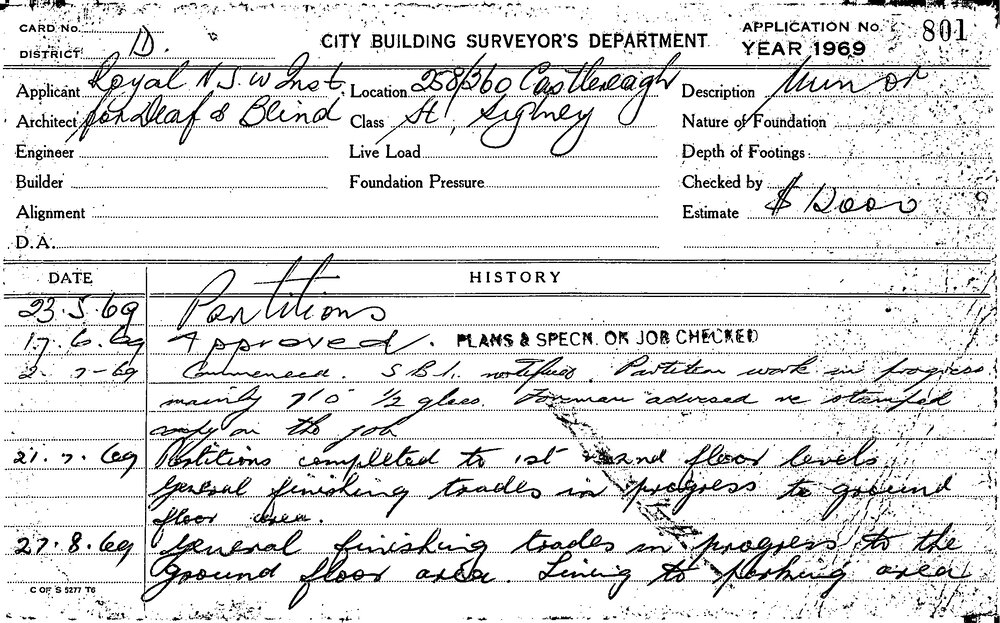 CARD No.
DISTRICT D.
CITY BUILDING SURVEYOR'S DEPARTMENT
APPLICATION No. 801
YEAR 1969
Applicant Royal N.S.W Inst. Location 258/260 Castlereagh Description Minor
Architect for Deaf & Blind Class St, Sydney Nature of Foundation
Engineer Live Load Depth of Footings
Builder Foundation Pressure Checked by
Alignment Estimate $ 12000
D.A.
DATE HISTORY
23.5.69 Partitions
17.6.69 Approved. PLANS & SPECN. ON JOB CHECKED
2-7-69 Commenced. S.B.I. notified. Partition work in progress
mainly 7'0 1/2 glass. Foreman advised re stamped
copy on the job
21.7.69 Partitions completed to 1st & 2nd floor levels
General finishing trades in progress to ground
floor area.
27.8.69 General finishing trades in progress to the
ground floor area. Lining to parking area
C OF S 5277 T6